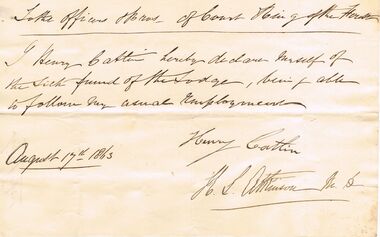 To the Officers & Bros. of Court King of the Forest
I Henry Catlin hereby declare myself off
the Sick fund of the Lodge, being able
to follow my usual Employment
Henry Catlin
August 17th 1863
H. S. Atkinson M. D